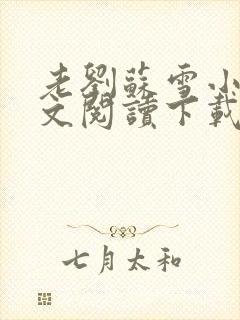 老劉蘇雪小
文閱讀下載
七月太和